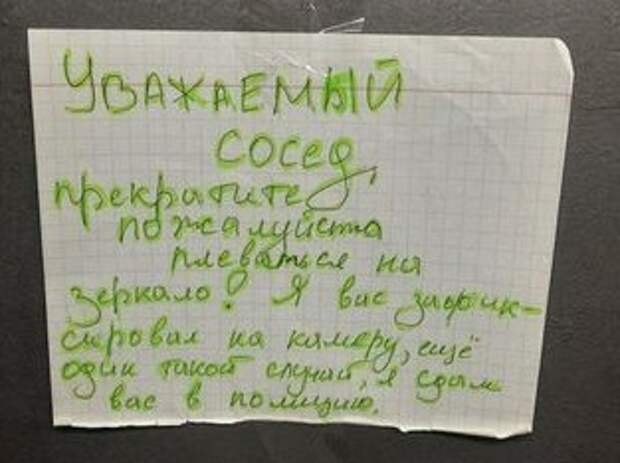 УВАЖАЕМЫЙ
СОСЕД,
прекратите
пожалуйста
плеваться на
зеркало! Я вас зафик-
сировал на камеру, ещё
один такой случай, я сдам
вас в полицию.